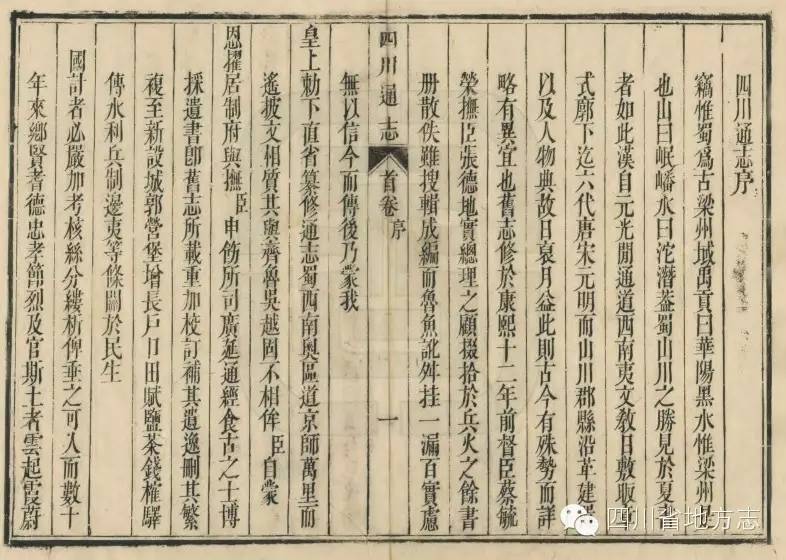 四川通志序
竊惟蜀爲古梁州域禹貢曰華陽黑水惟梁州
也山曰岷嶓水曰沱潛葢蜀山川之勝見於夏
者如此漢自元光閒通道西南夷文敎日敷馭
式廓下迄六代唐宋元明而山川郡縣沿革建
以及人物典故日裒月益此則古今有殊勢而詳
略有異宜也舊志修於康熙十二年前督臣蔡毓
榮撫臣張德地實總理之顧掇拾於兵火之餘書
册散佚雖搜輯成編而魯魚訛舛挂一漏百實慮
無以信今而傳後乃蒙我
四川通志
首卷
序
一
皇上勅下直省纂修通志蜀西南奥區道京師萬里而
遙披文相質其與齊魯吳越固不相侔臣自蒙
恩擢居制府與撫臣申飭所司廣延通經食古之士博
採遺書卽舊志所載重加校訂補其遺逸刪其繁
複至新設城郭營堡增長戶口田賦鹽茶錢榷驛
傳水利兵制邊夷等條關於民生
國計者必嚴加考核絲分縷析俾垂之可久而數十
年來鄉賢耆德忠孝節烈及官斯土者雲起霞蔚
四川省地方志